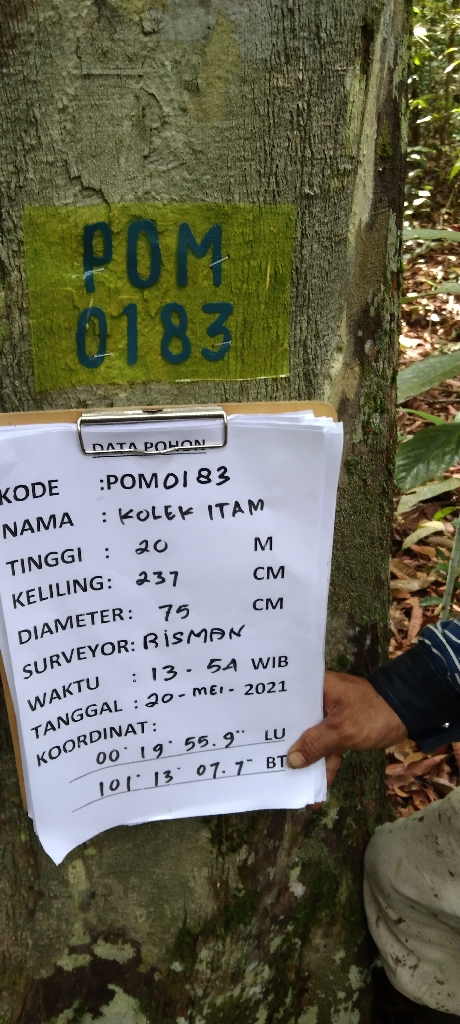 POM
0183
DATA POHON
KODE :POM0183
NAMA : KOLEK ITAM
TINGGI : 20 M
KELILING: 237 CM
DIAMETER: 75 CM
SURVEYOR: RISMAN
WAKTU : 13-54 WIB
TANGGAL : 20-MEI-2021
KOORDINAT:
00° 19' 55.9" LU
101° 13' 07.7" BT